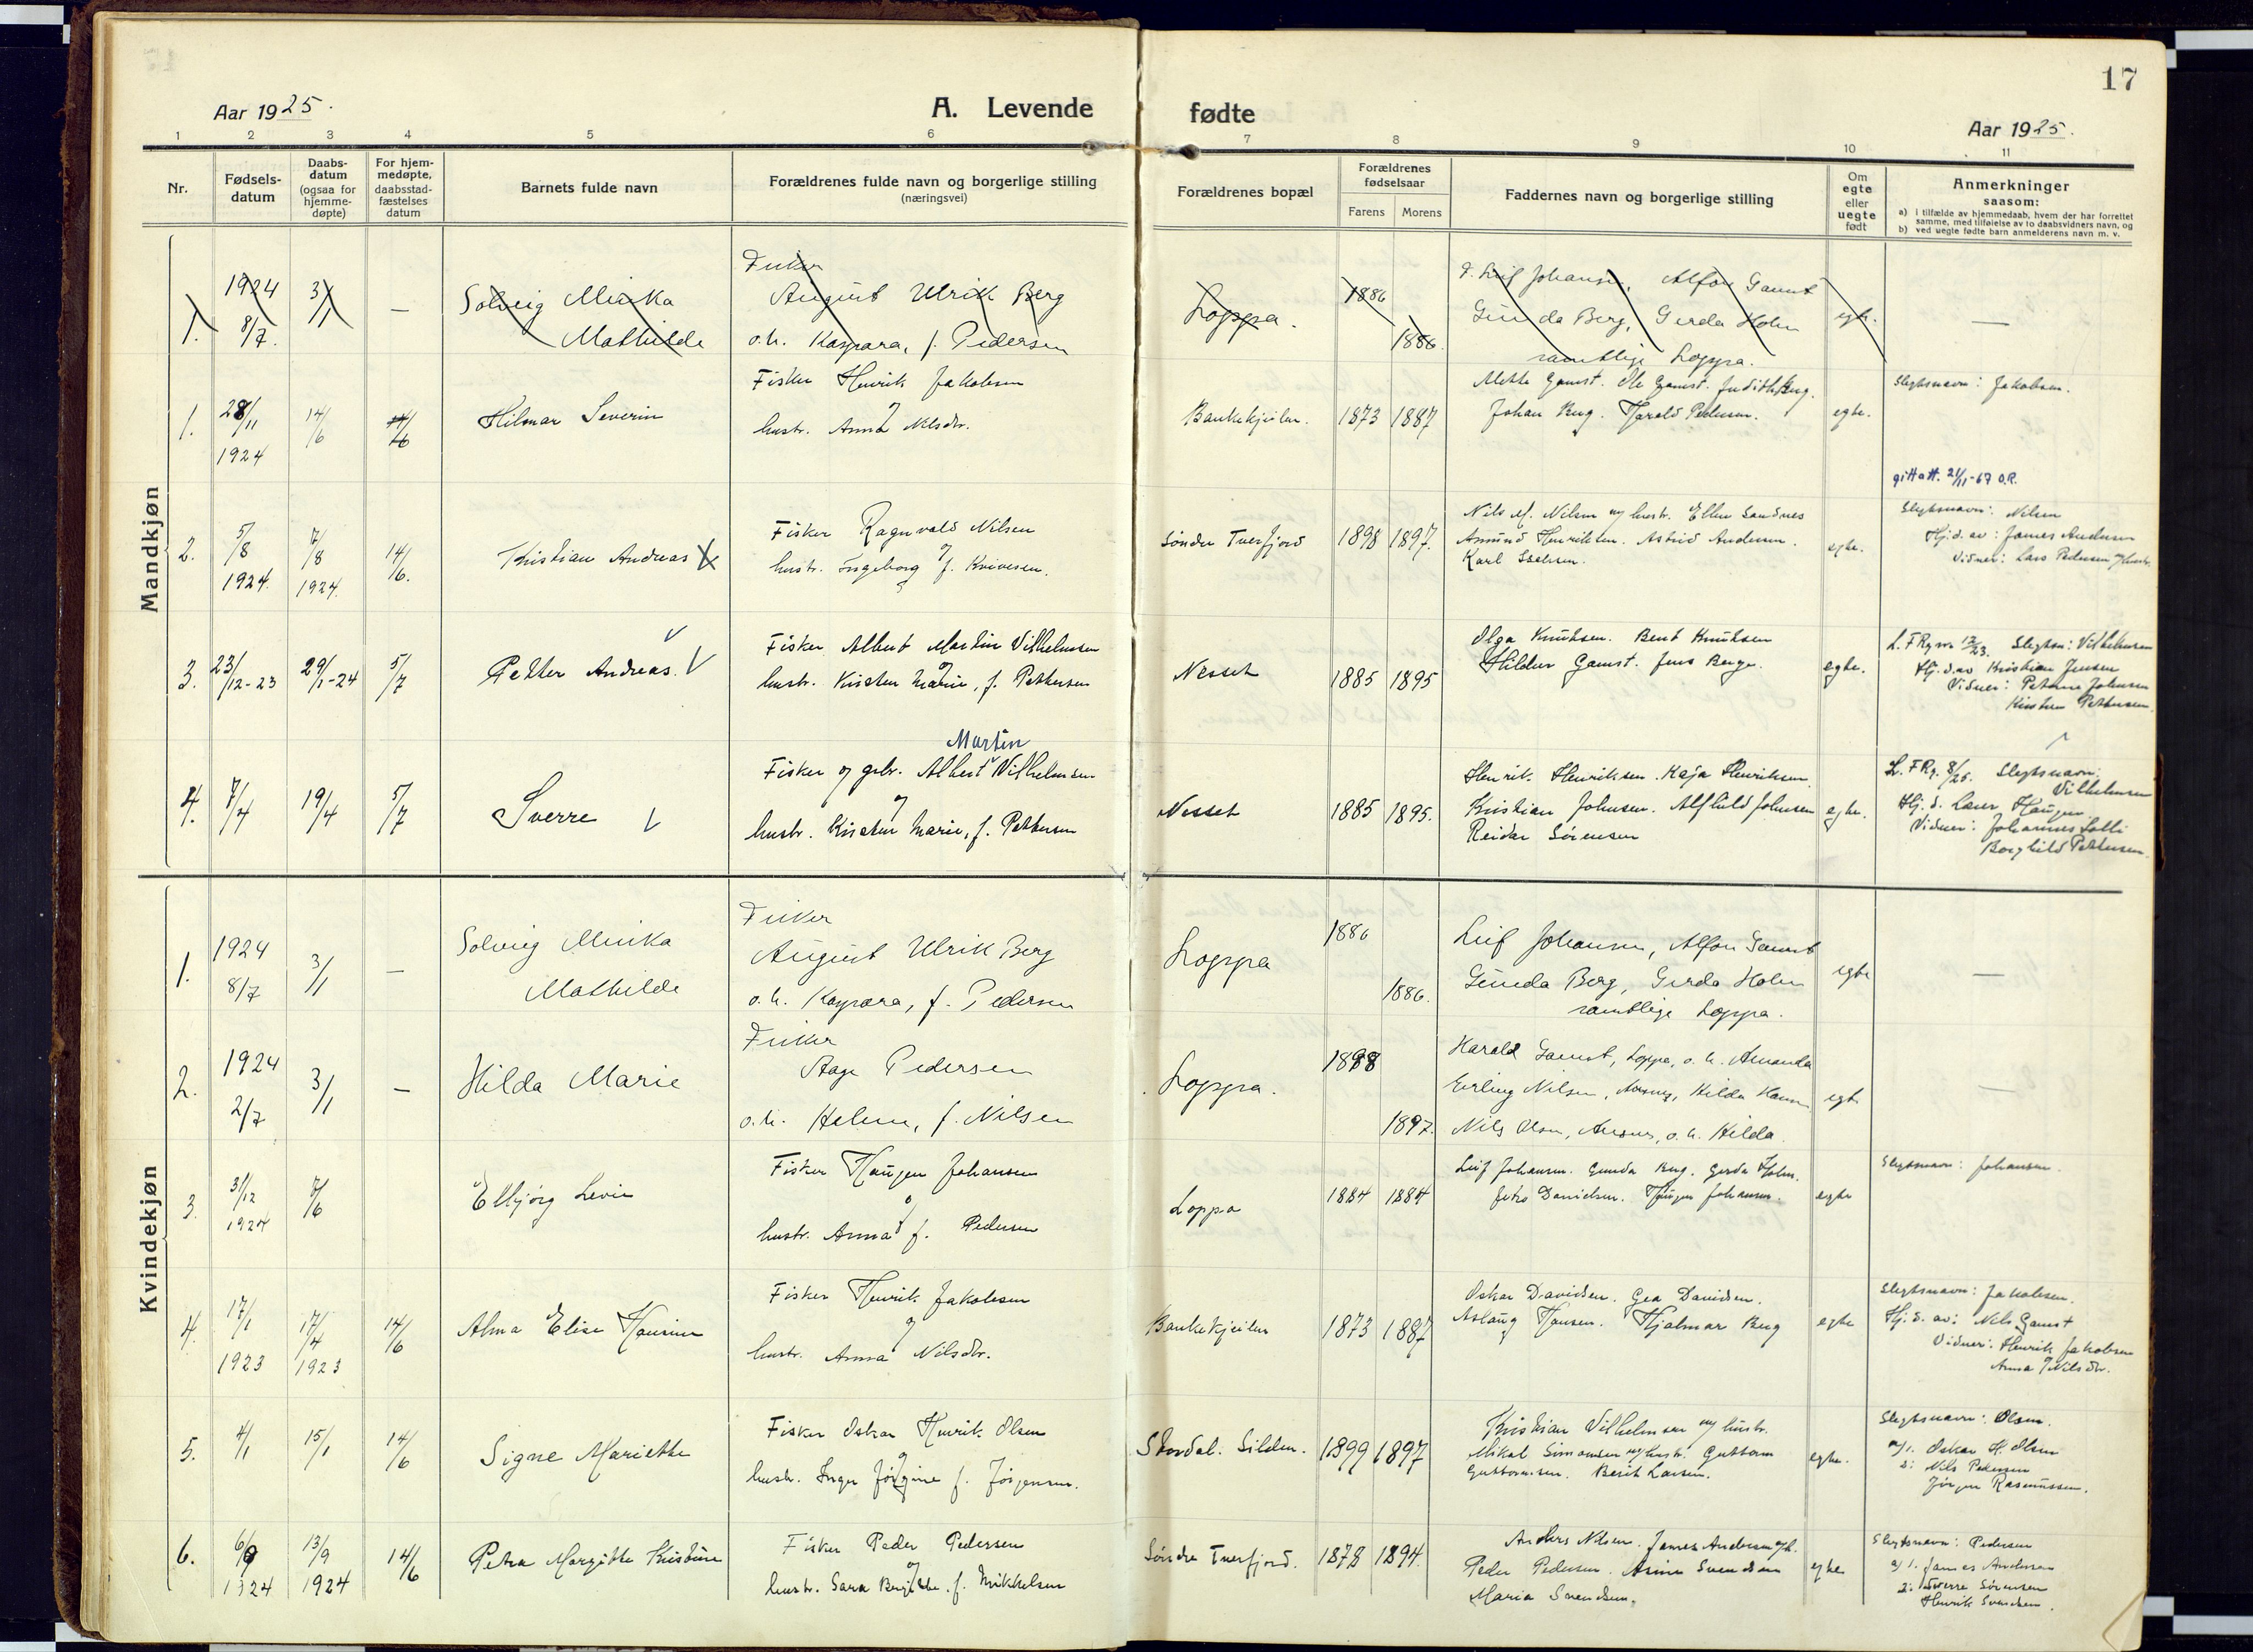 17
Aar 1925.
A. Levende fødte
Aar 1925.
1 2 3 4 5 6 7 8 9 10 11
Nr.
Fødsels-
datum
Daabs-
datum
(ogsaa for
hjemme-
døpte)
For hjem-
medøpte,
daabsstad-
fæstelses
datum
Barnets fulde navn
Forældrenes fulde navn og borgerlige stilling
(næringsvei)
Forældrenes bopæl
Forældrenes
fødselsaar
Farens Morens
Faddernes navn og borgerlige stilling
Om
egte
eller
uegte
født
Anmerkninger
saasom:
a) i tilfælde av hjemmedaab, hvem der har forrettet
samme, med tilføielse av to daabsvidners navn, og
b) ved uegte fødte barn anmelderens navn m. v.
Mandkjøn
1.
1924
8/7.
3/1
—
Solveig Minka
Mathilde
Fisker
August Ulrik Berg
o.h. Kaspara, f. Pedersen
Loppa.
1886
1886.
Leif Johansen, Alfon Gamst
Gunda Berg, Gerda Holm
samtlige Loppa.
egte.
—
1.
28/11
1924
14/6
14/6
Hilmar Severin
Fisker Henrik Jakobsen
og
hustr. Anna Nilsdtr.
Bankekjeilen.
1873 1887
Mette Gamst. Ole Gamst. Judith Berg.
Johan Berg. Harald Pedersen.
egte.
Slegtsnavn: Jakobsen.
2.
5/8
1924.
7/8
1924.
14/6.
Kristian Andreas
Fisker Ragnvald Nilsen
og
hustr. Ingeborg f. Kvivesen.
Søndre Tverfjord
1898 1897.
Nils M. Nilsen og hustr. Ellen Sandnes
Amund Henriksen. Astrid Andersen.
Karl
egte.
gift att. 21/11-67 O.R.
Slegtsnavn: Nilsen
Hj.d. av: James Andersen
Vidner: Lars Pedersen og hustr.
3.
23/12-23
29/1-24
5/7
Petter Andreas. V
Fisker Albert Martin Vilhelmsen
og
hustr. Kirsten Marie, f. Pettersen
Nesset
1885 1895
Olga Knutsen. Bent Knutsen
Hildur Gamst. Jens Berge.
egte.
L. F Rg. nr. 12/23. Slegtsn: Vilhelmsen
Hj.d. av Kristian Jensen
Vidner: Petrine Johnsen
Kirsten Pettersen.
4.
7/4
19/4
5/7
Sverre V
Martin
Fisker og grbr. Albert Vilhelmsen
og
hustr. Kirsten Marie, f. Pettersen
Nesset
1885 1895.
Henrik Henriksen. Kaja Henriksen
Kristian Johnsen. Alfhild Johnsen
Reidar Sørensen
egte.
L. F Rg. 8/25. Slegtsnavn:
Vilhelmsen
Hj. d. Laur Haugen
Vidner: Johannes
Borghild Pettersen.
Kvindekjøn
1.
1924
8/7
3/1
—
Solveig Minka
Mathilde
Fisker
August Ulrik Berg
o.h. Kaspara, f. Pedersen
Loppa
1886
1886.
Leif Johansen, Alfon Gamst
Gunda Berg, Gerda Holm
samtlige Loppa.
egte
—
2.
1924
2/7
3/1
—
Hilda Marie
Fisker
Aage Pedersen
o.h. Helene, f. Nilsen
Loppa.
1898
1897.
Harald Gamst, Loppa, o. h. Amanda
Erling Nilsen, Hilda
Nils Olsen, o. h. Hilda.
egte
—
3.
31/12
1924
7/6
Elbjørg Levie
Fisker Haugen Johansen
og
hustr. Anna f. Pedersen
Loppa
1884 1884
Leif Johansen. Gunda Berg. Gerda Holm.
Petra Danielsen. Haugen Johansen.
egte
Slegtsnavn: Johansen.
4.
17/1
1923
17/4
1923
14/6
Alma Elise Hansine
Fisker Henrik Jakobsen
og
hustr. Anna Nilsdtr.
Bankekjeilen
1873 1887
Oskar Davidsen. Gea Davidsen.
Aslaug Hansen. Hjalmar Berg
egte
Slegtsnavn: Jakobsen.
Hj. d. av: Nils Gamst
Vidner: Henrik Jakobsen
Anna Nilsdtr.
5.
4/1
15/1
14/6
Signe Mariethe
Fisker Oskar Henrik Olsen
og
hustr. Inga Jørgine f. Jørgensen.
Stordal. Silden.
1899 1897
Kristian Vilhelmsen og hustr.
Mikal Simonsen og hustr. Guttorm
Guttormsen. Berit Larsen.
egte.
Slegtsnavn: Olsen.
a/1. Oskar H. Olsen
2: Nils Pedersen
Jørgen Rasmussen.
6.
6/9
1924
13/9
1924
14/6
Petra Margitte Kristine
Fisker Peder Pedersen
og
hustr. Sara Bergitte f. Mikkelsen
Søndre Tverfjord.
1878 1894.
Anders Nilsen. James Andersen og h.
Peder Pedersen. Asine Svendsen
Maria Svendsen.
egte
Slegtsnavn: Pedersen
a/ 1. James Andersen
2: Sverre Sørensen
Henrik Svendsen.